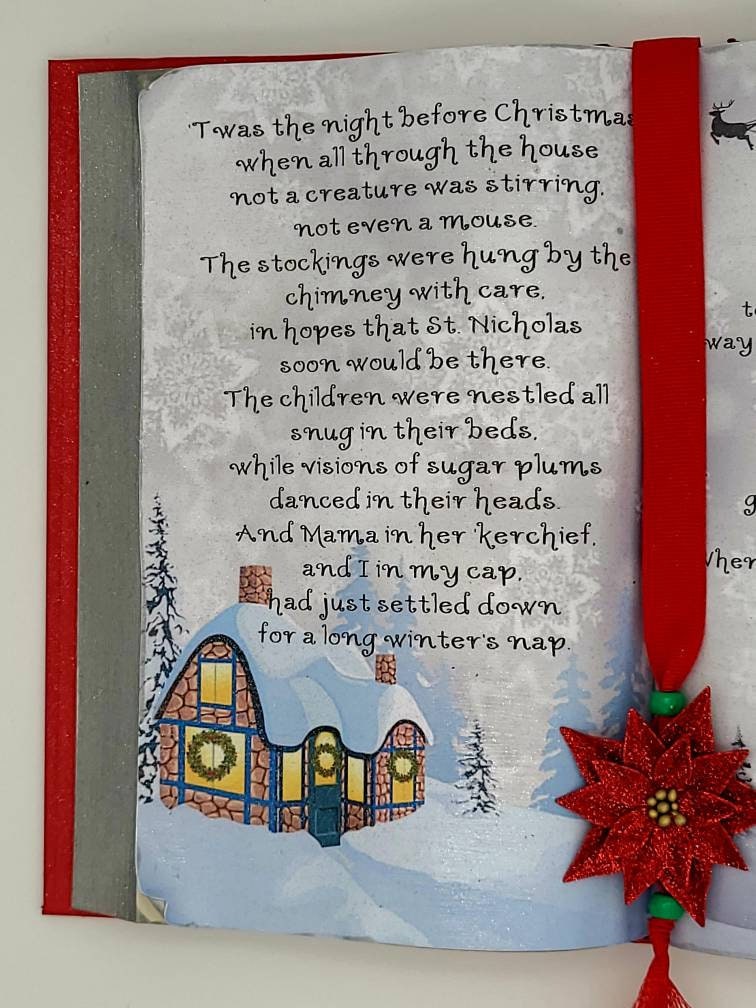 'Twas the night before Christmas
when all through the house
not a creature was stirring,
not even a mouse.
The stockings were hung by the
chimney with care,
in hopes that St. Nicholas
soon would be there.
The children were nestled all
snug in their beds,
while visions of sugar plums
danced in their heads.
And Mama in her 'kerchief,
and I in my cap,
had just settled down
for a long winter's nap.
way